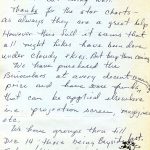 Thanks for the star charts -
as always they are a great help.
However this fall it seems that
all night hikes have been done
under cloudy skies. But
We have purchased the
Binoculars at a very decent
price and have some funds
that can be applied elsewhere
i.e. projection screen, magazines
etc.
We have groups thru till
Dec 14 - those being